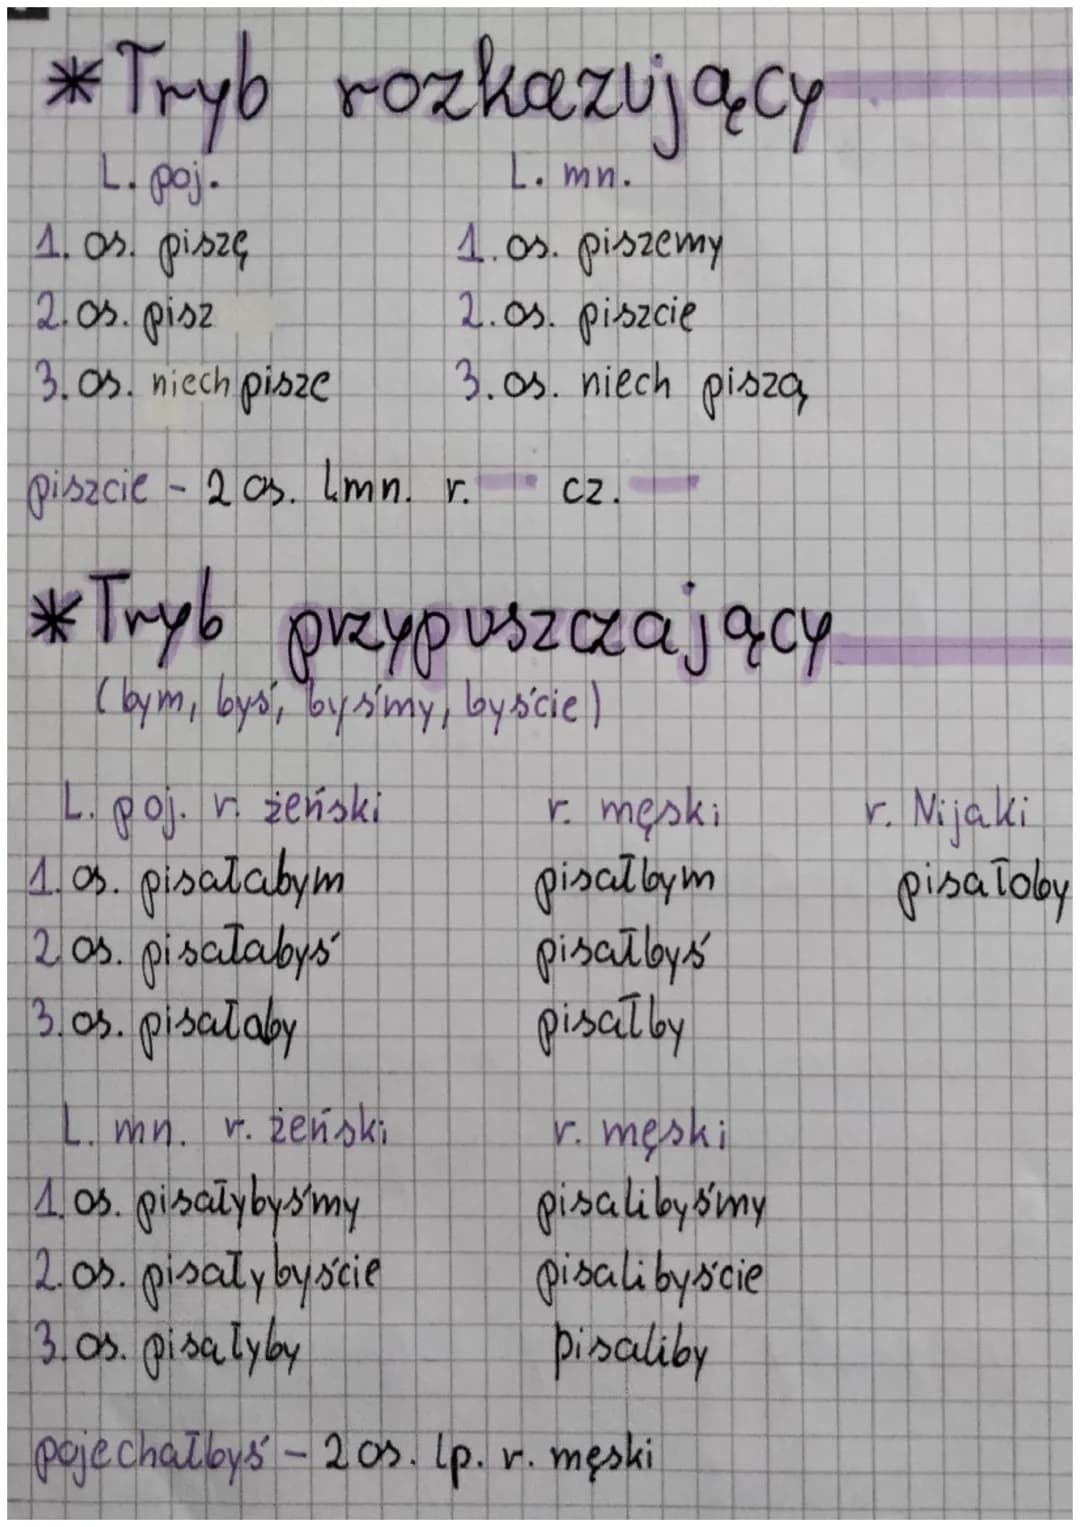 *Tryb rozkazujący
L. poj. L. mn.
1. os. piszę 1. os. piszemy
2. os. pisz 2. os. piszcie
3. os. niech pisze 3. os. niech piszą
piszcie - 2 os. l.mn. r. — cz. —
*Tryb przypuszczający
(bym, byś, byśmy, byście)
L. poj. r. żeński r. męski r. Nijaki
1. os. pisałabym pisałbym pisałoby
2 os. pisałabyś pisałbyś
3. os. pisałaby pisałby
L. mn. r. żeński r. męski
1. os. pisałybyśmy pisalibyśmy
2. os. pisałybyście pisalibyście
3. os. pisałyby pisaliby
pojechałbyś - 2 os. lp. r. męski